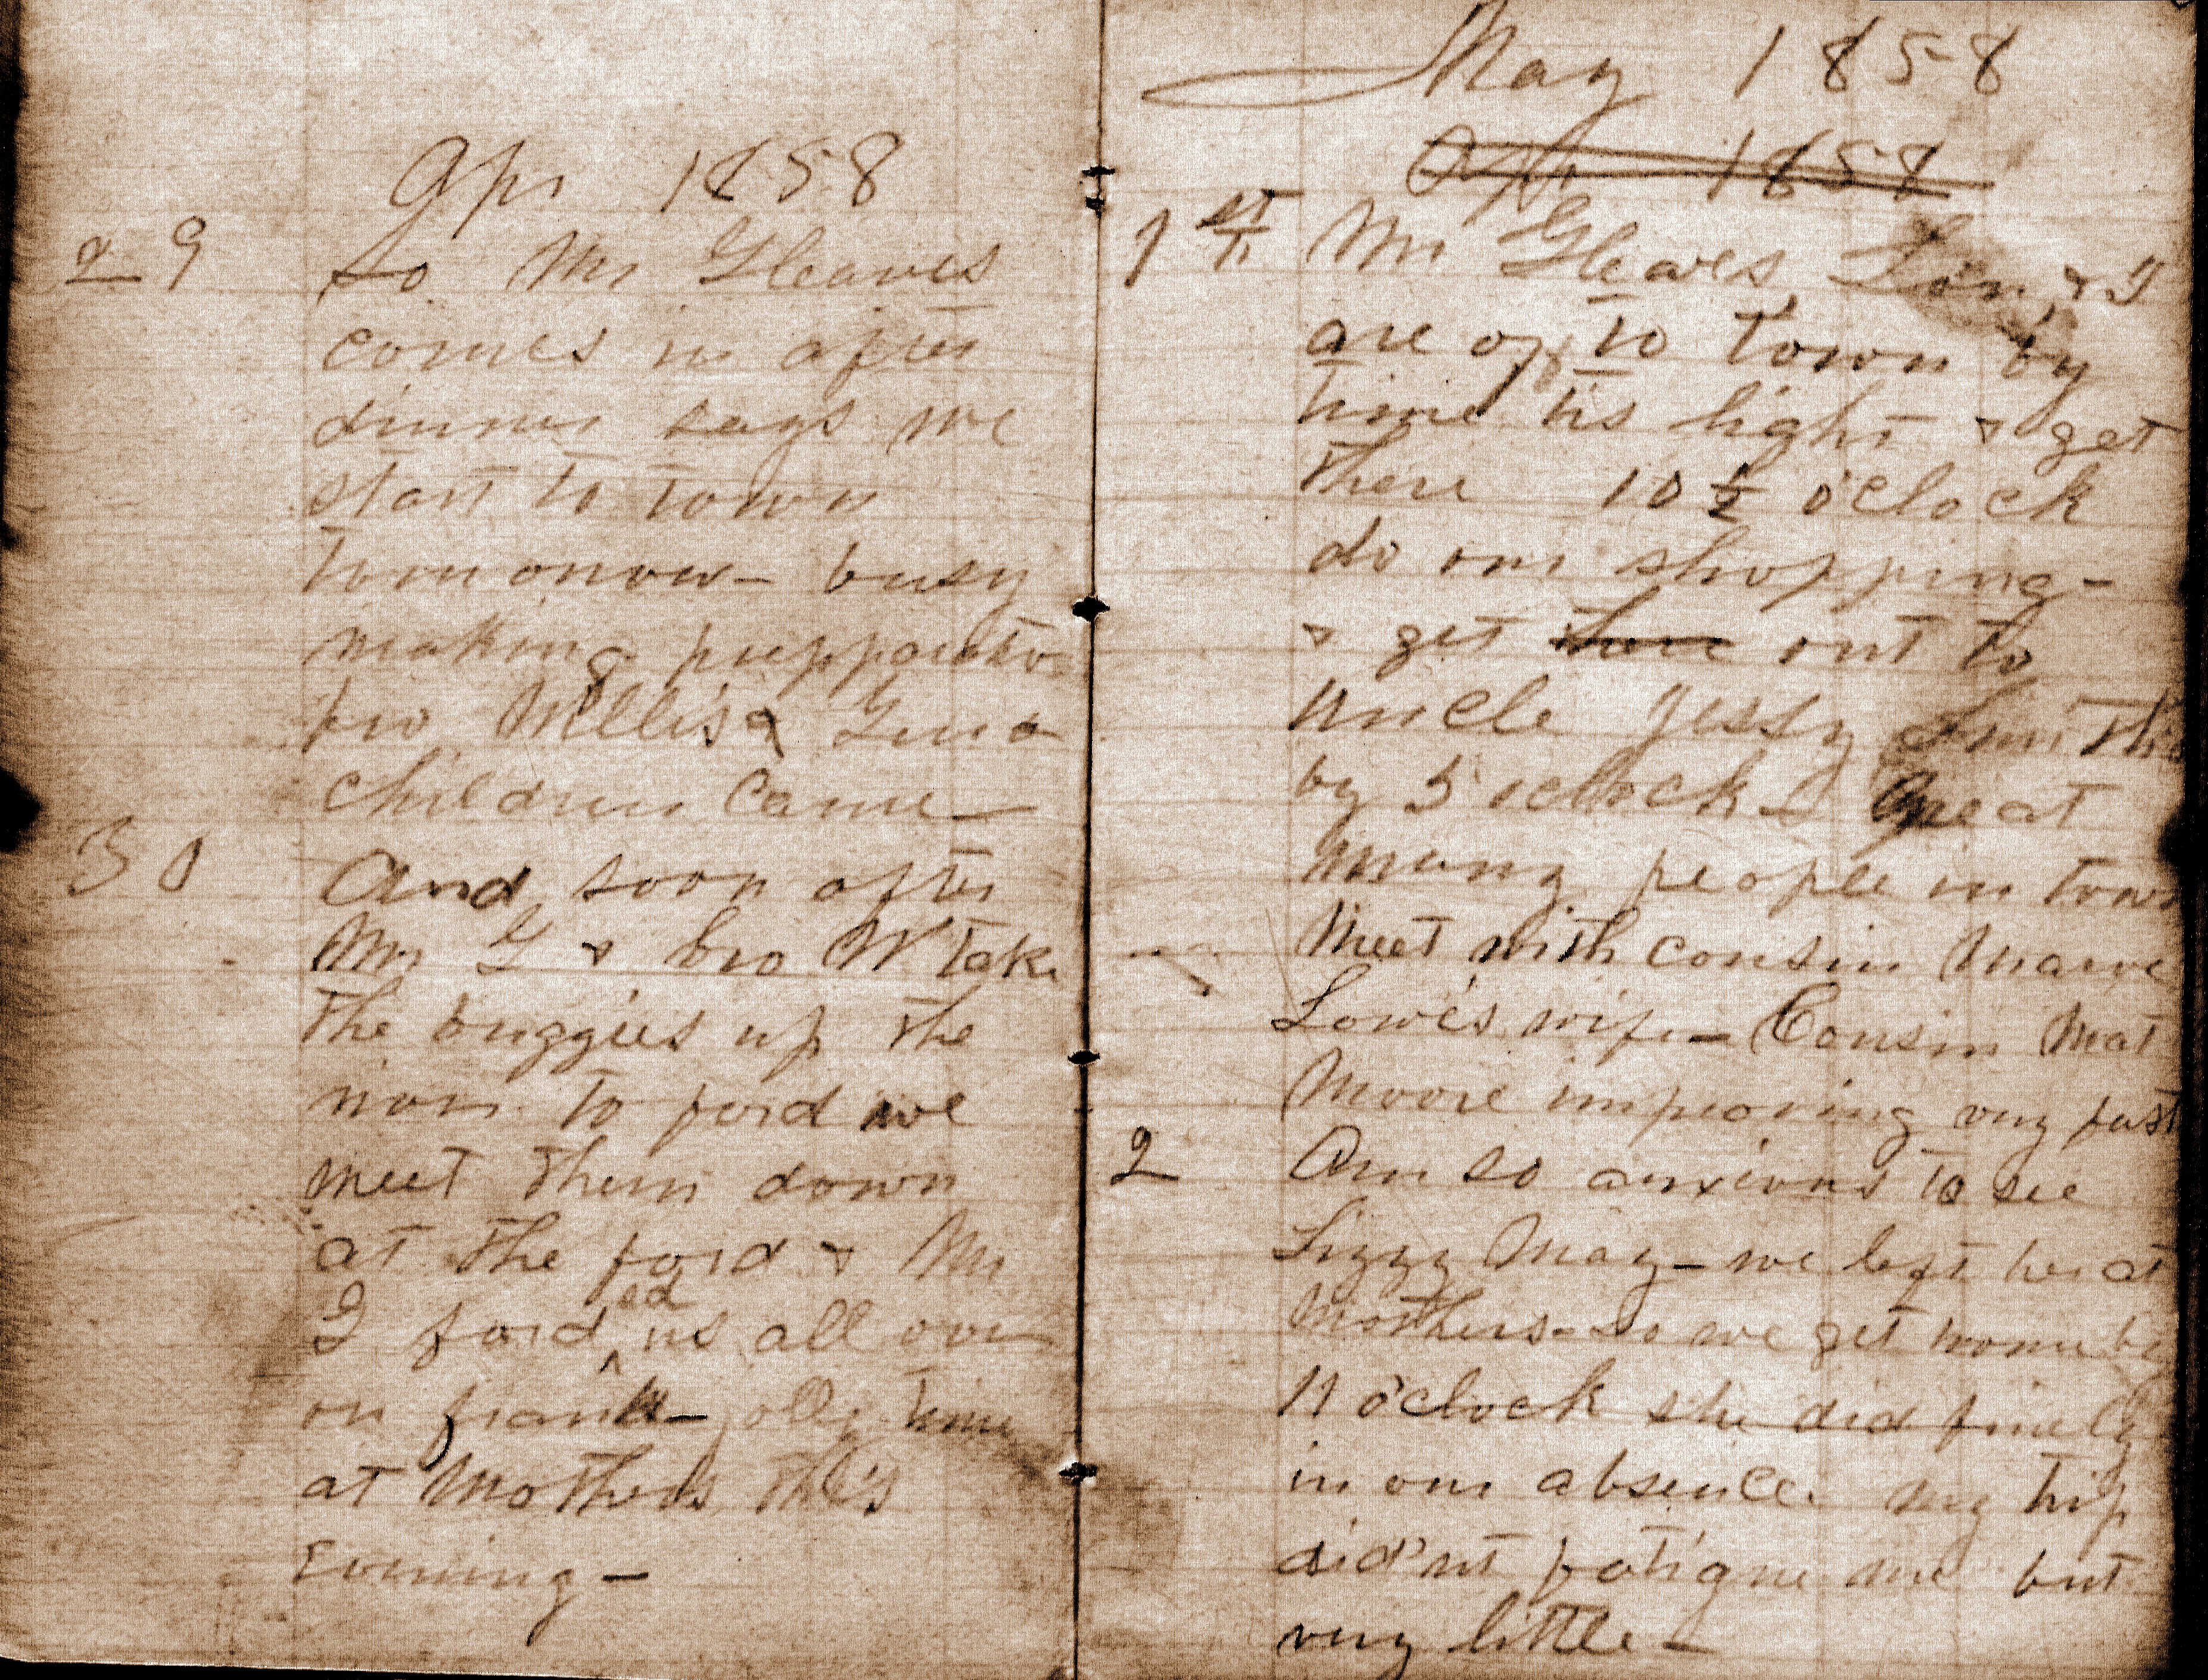 Apr 1858
29 so Mr Gleaves
comes in after
dinner says we
start to town
tomorrow - busy
making
bro Willis &
children came -
30 And soon after
Mr G & bro W take
the buggies up the
river to ford we
meet them down
at the ford & Mr
G forded us all over
on frank - jolly time
at Mothers this
Evening -
May 1858
Apr 1858
1st Mr Gleaves & I
are off to town by
time tis light & get
there 10 ½ o'clock
do our shopping -
& get out to
uncle Jessy Smiths
by 5 oclock - Great
many people in town
Meet with cousin
Lowe's wife - Cousin Mat
Moore improving very fast
2 Am so anxious to see
Lizzy May - we left her at
Mothers - so we get home by
11 o'clock she did finely
in our absence. my trip
did'nt fatigue me but
very little -